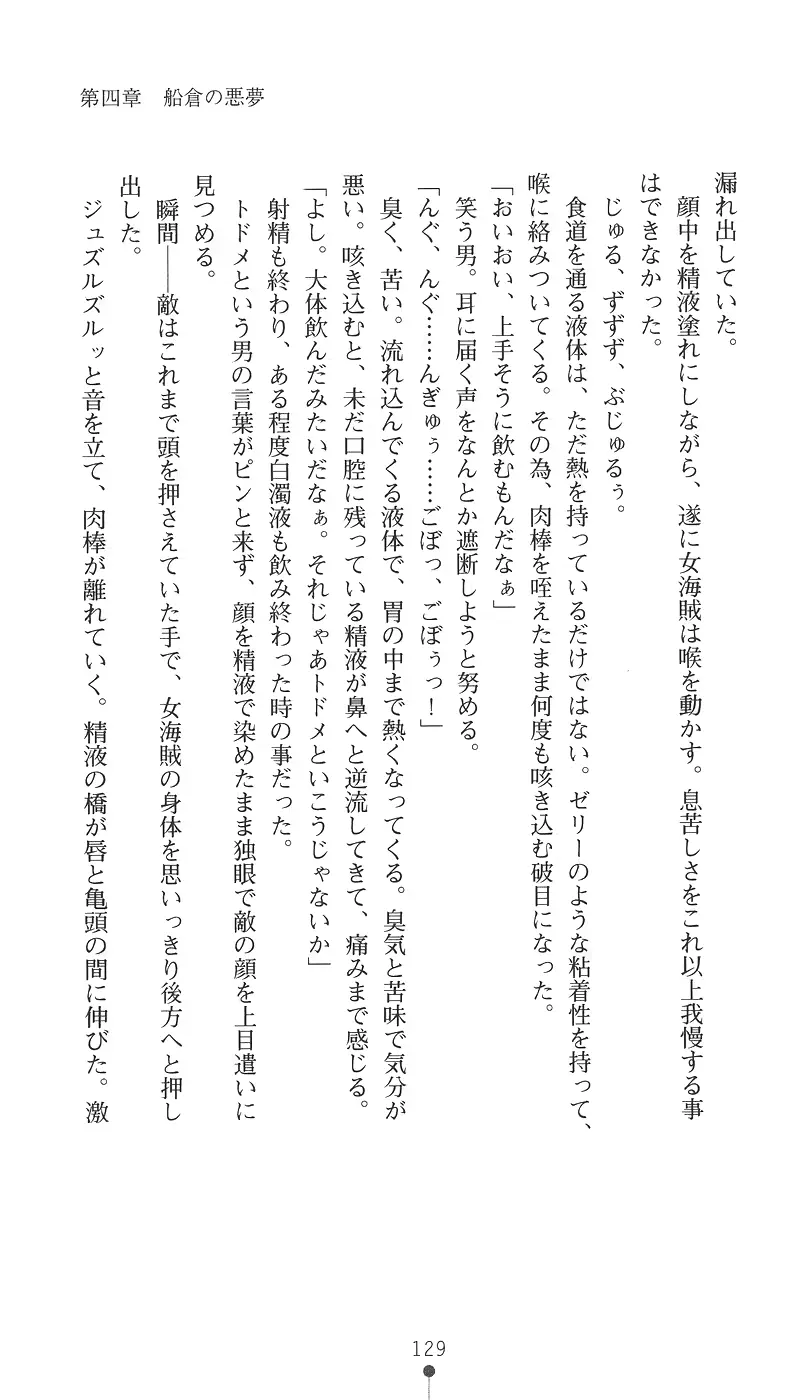 第四章　船倉の悪夢
漏れ出していた。
　顔中を精液塗れにしながら、遂に女海賊は喉を動かす。息苦しさをこれ以上我慢する事
はできなかった。
　じゅる、ずずず、ぶじゅるぅ。
　食道を通る液体は、ただ熱を持っているだけではない。ゼリーのような粘着性を持って、
喉に絡みついてくる。その為、肉棒を咥えたまま何度も咳き込む破目になった。
「おいおい、上手そうに飲むもんだなぁ」
　笑う男。耳に届く声をなんとか遮断しようと努める。
「んぐ、んぐ……んぎゅぅ……ごぼっ、ごぼぅっ！」
　臭く、苦い。流れ込んでくる液体で、胃の中まで熱くなってくる。臭気と苦味で気分が
悪い。咳き込むと、未だ口腔に残っている精液が鼻へと逆流してきて、痛みまで感じる。
「よし。大体飲んだみたいだなぁ。それじゃあトドメといこうじゃないか」
　射精も終わり、ある程度白濁液も飲み終わった時の事だった。
　トドメという男の言葉がピンと来ず、顔を精液で染めたまま独眼で敵の顔を上目遣いに
見つめる。
　瞬間――敵はこれまで頭を押さえていた手で、女海賊の身体を思いっきり後方へと押し
出した。
　ジュズルズルッと音を立て、肉棒が離れていく。精液の橋が唇と亀頭の間に伸びた。激
129